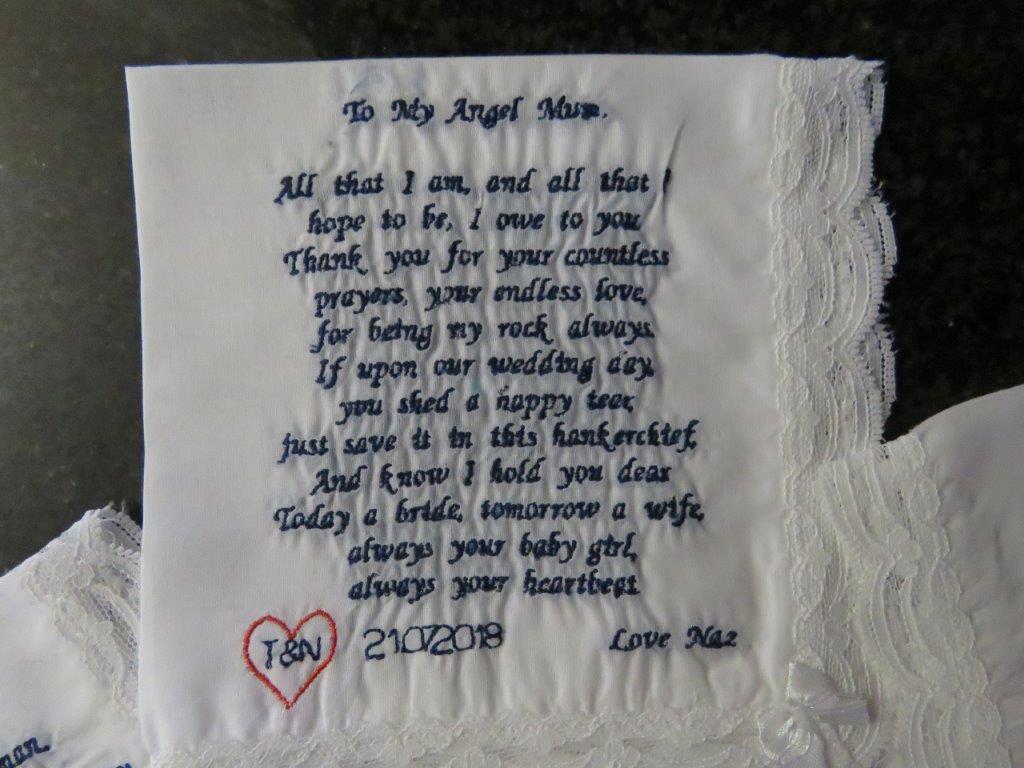 To My Angel Mum.
All that I am, and all that I
hope to be, I owe to you
Thank you for your countless
prayers, your endless love,
for being my rock always.
If upon our wedding day,
you shed a happy tear,
Just save it in this hankerchief,
And know I hold you dear
Today a bride, tomorrow a wife,
always your baby girl,
always your heartbeat
T&N 21072018 Love Naz